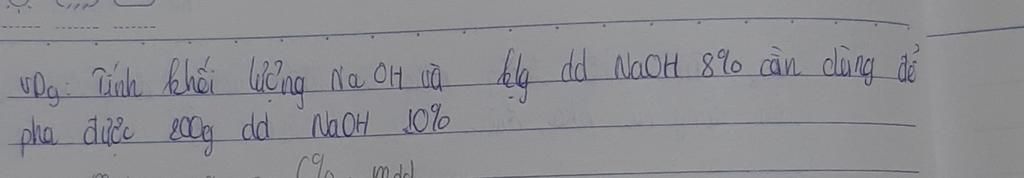 VD9: Tính khối lượng NaOH và klg dd NaOH 8% cần dùng để
pha được 200g dd NaOH 10%
C% mdd